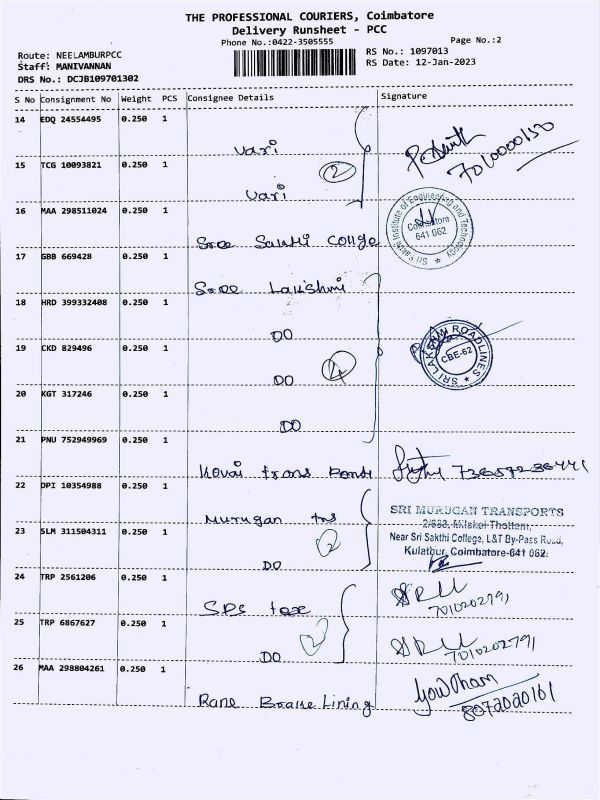 THE PROFESSIONAL COURIERS, Coimbatore
Delivery Runsheet - PCC
Phone No.:0422-3505555
Page No.:2
Route: NEELAMBURPCC
Staff: MANIVANNAN
DRS No.: DCJB109701302
RS No.: 1097013
RS Date: 12-Jan-2023
S No Consignment No Weight PCS Consignee Details Signature
14 EDQ 24554495 0.250 1
Vari
7010000150
15 TCG 10093821 0.250 1
2
Vari
16 MAA 298511024 0.250 1
Sri Sakthi Institute of Engineering and Technology
Coimbatore
641 062
Sree Sakthi College
17 GBB 669428 0.250 1
Sree Lakshmi
18 HRD 399332408 0.250 1
DO
19 CKD 829496 0.250 1
SRI LAKSHMI ROADLINES
CBE-62
DO
4
20 KGT 317246 0.250 1
DO
21 PNU 752949969 0.250 1
Kovai trans
22 DPI 10354988 0.250 1
Murugan tns
SRI MURUGAN TRANSPORTS
2/693, Milakai Thottam,
Near Sri Sakthi College, L&T By-Pass Road,
Kulathur, Coimbatore-641 062.
23 SLM 311504311 0.250 1
2
DO
24 TRP 2561206 0.250 1
SPS tex
7010202791
25 TRP 6867627 0.250 1
2
DO
7010202791
26 MAA 298804261 0.250 1
Rane Brake Lining
Gowtham
8072020161